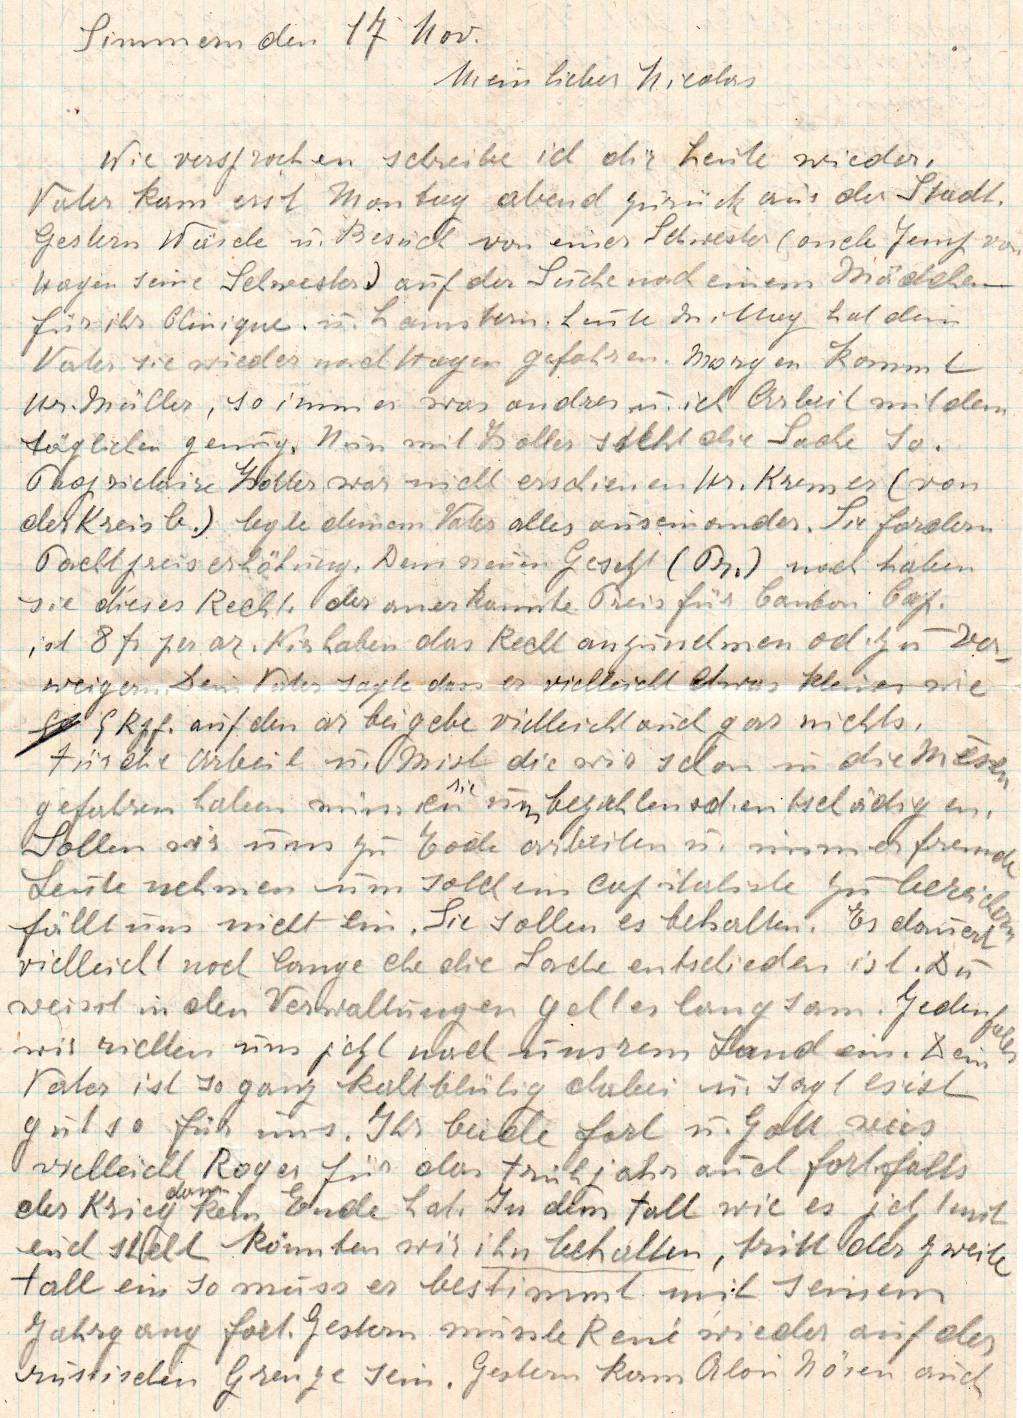 Simmern den 17 Nov.
Mein lieber Nicolas
Wie versprochen schreibe ich dir heute wieder.
Vater kam erst Montag abend zurück aus der Stadt.
Gestern Wäsche u. Besuch von einer Schwester (onck Jemp von
Hagen seine Schwester) auf der Suche nach einem Mädchen
für ihr Clinique. u. hamstern. Heute Mittag hat dein
Vater sie wieder nach Hagen gefahren. Morgen kommt
Hr. Müller, so immer was andres u. ich Arbeit mit dem
täglichen genug. Nun mit steht die Sache so.
Propriétaire war nicht erschienen Hr. Kremer (von
der Kreisb.) legte deinem Vater alles auseinander. Sie fordern
Pachtpreiserhöhung. Dem neuen Gesetz (Pr.) nach haben
sie dieses Recht. der anerkannte Preis für Canton Cap.
ist 8 fr per ar. Wir haben das Recht anzunehmen od. zu ver-
weigern. Dein Vater sagte dass er vielleicht etwas kleines wie
5 Rpf. auf den ar beigebe vielleicht auch gar nichts.
Für die Arbeit u. Mist die wir schon in die
gefahren haben müssen sie uns bezahlen od. entschädigen.
Sollen wir uns zu Tode arbeiten u. immer fremde
Leute nehmen um solch ein capitaliste zu bereichern
fällt uns nicht ein. Sie sollen es behalten. Es dauert
vielleicht noch lange ehe die Sache entschieden ist. Du
weisst in den Verwaltungen geht es langsam. Jedenfalls
wir richten uns jetzt nach unsrem Land ein. Dein
Vater ist so ganz kaltblütig dabei u. sagt es ist
gut so für uns. Ihr beide fort u. Gott weis
vielleicht Roger für das Frühjahr auch fort falls
der Krieg dann kein Ende hat. In dem Fall wie es jetzt mit
euch steht könnten wir ihn behalten, tritt der zweite
Fall ein so muss er bestimmt mit seinem
Jahrgang fort. Gestern musste René wieder auf der
russischen Grenze sein. Gestern kam Alois Nösen auch